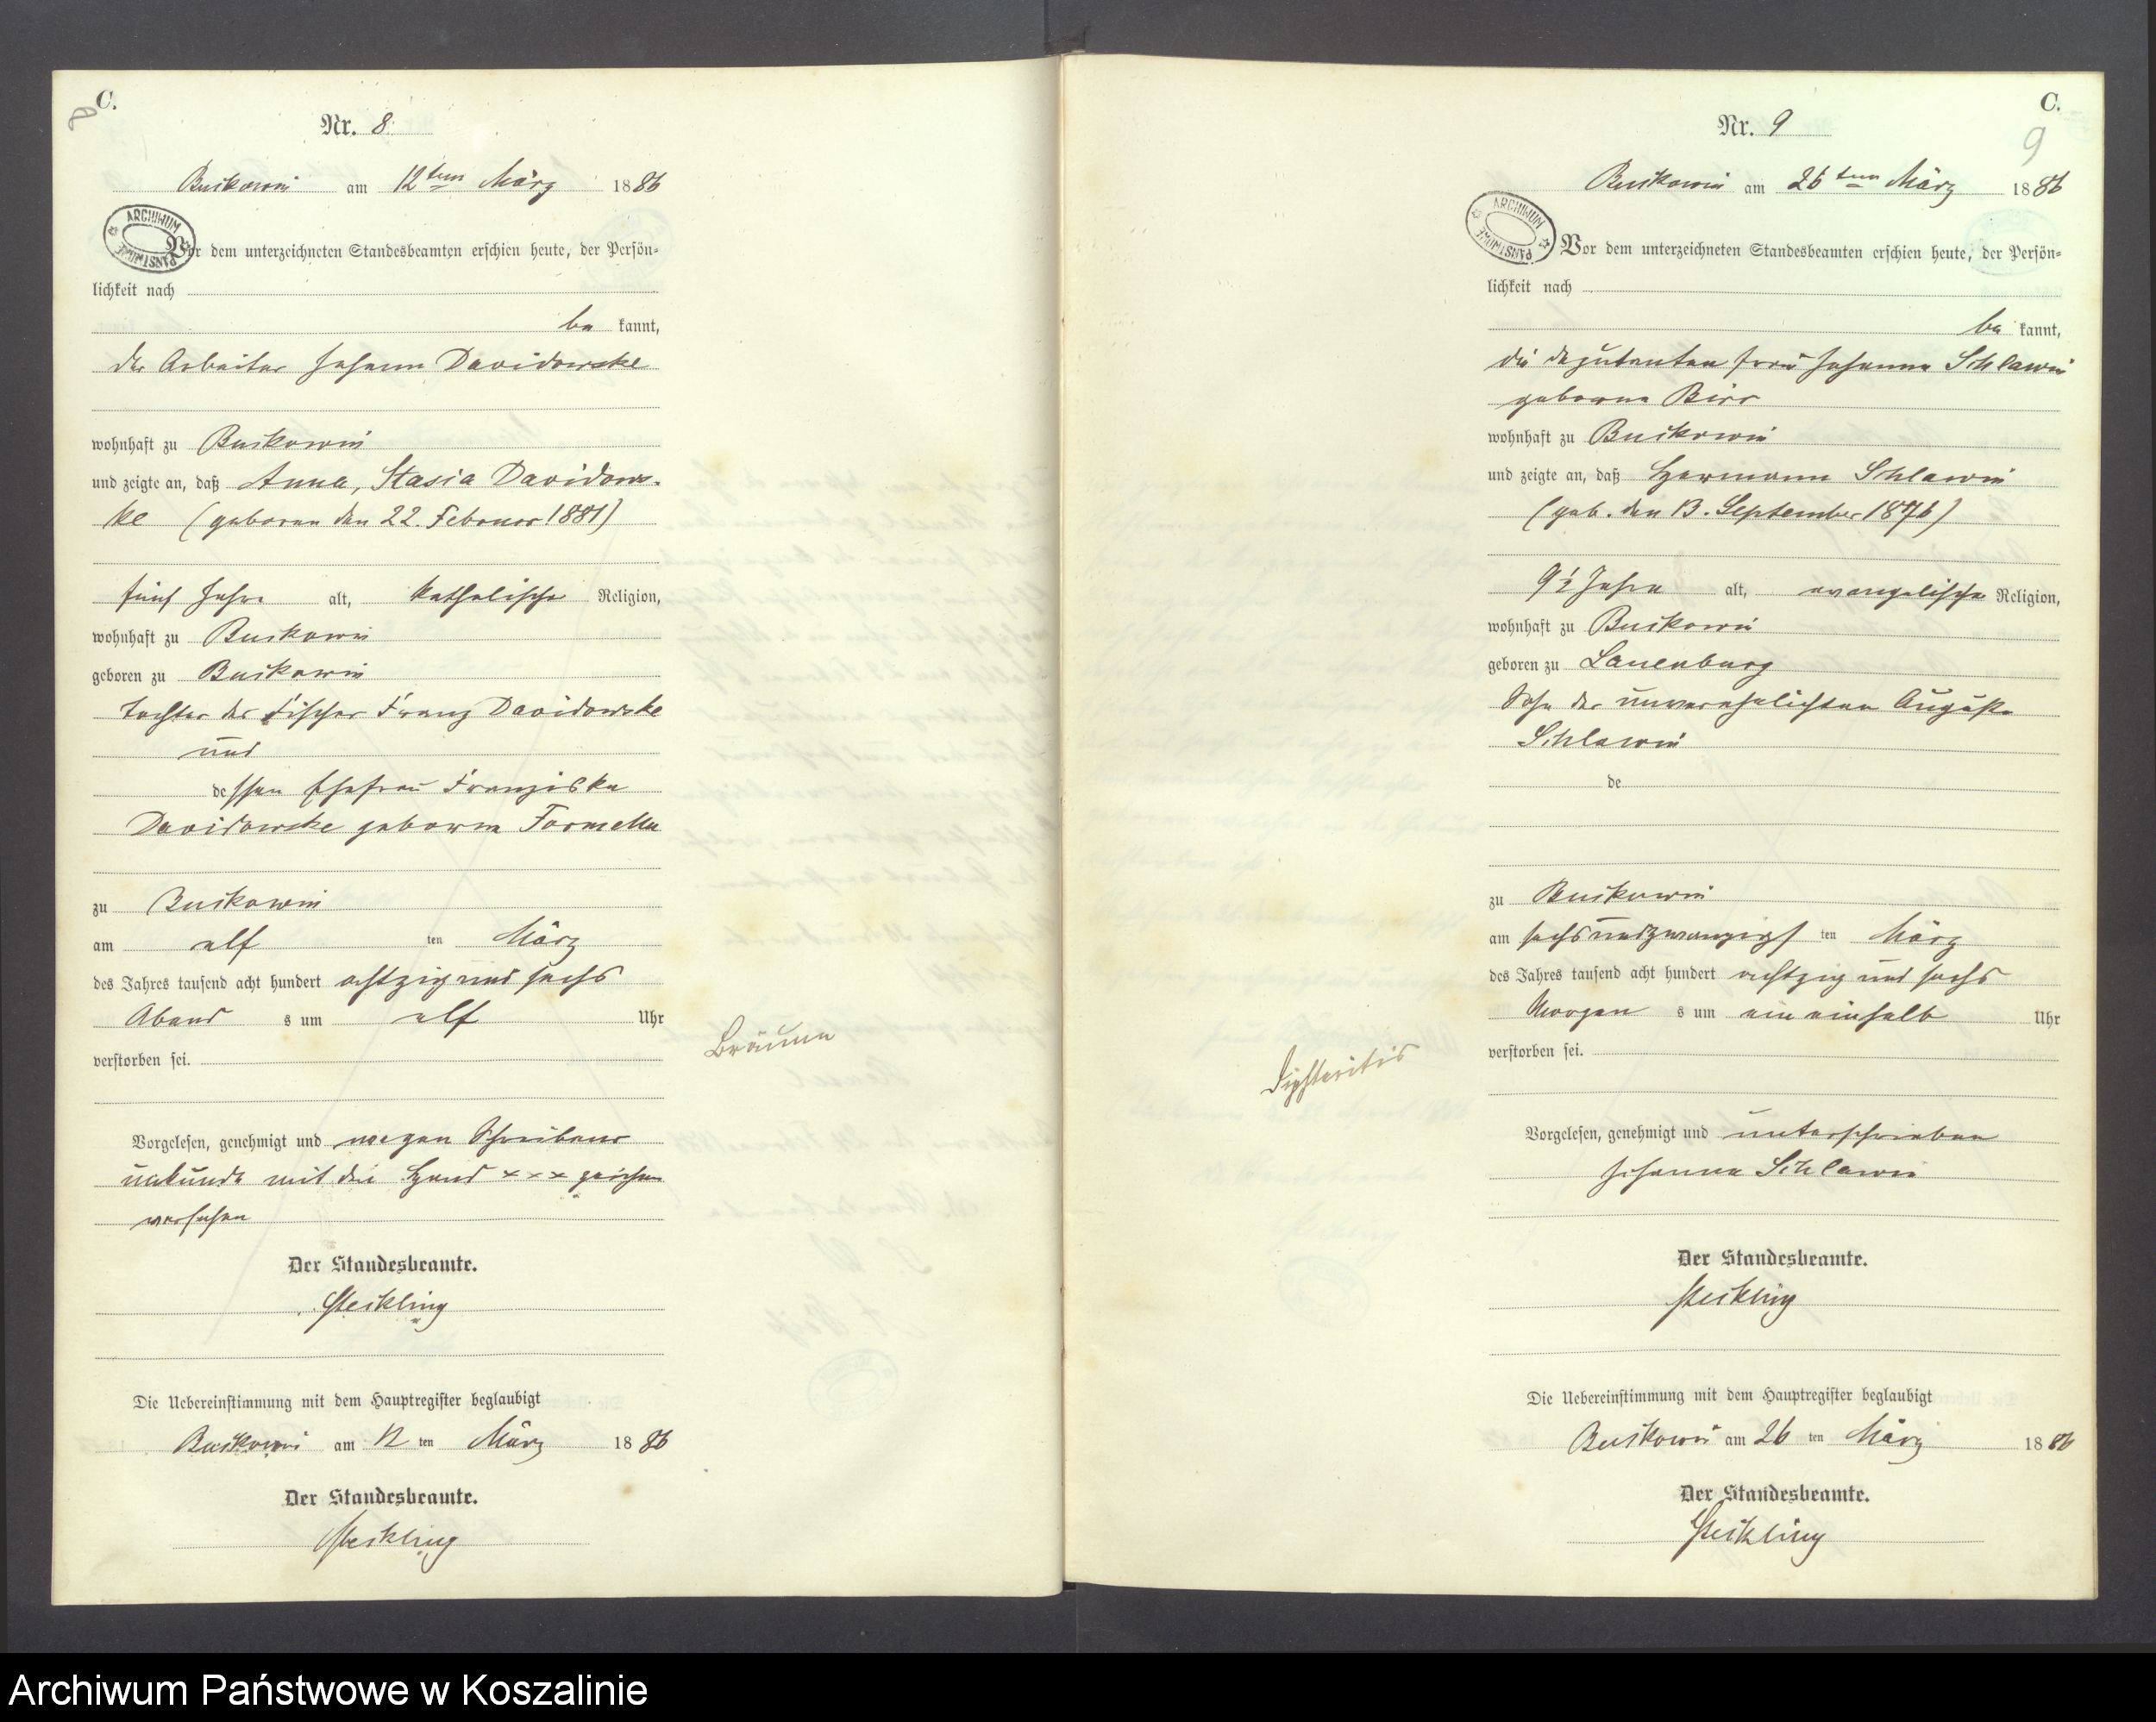 C.
8
Nr. 8.
Buckowin am 12ten März 1886
ARCHIWUM PAŃSTWOWE
Vor dem unterzeichneten Standesbeamten erschien heute, der Persön-
lichkeit nach
be kannt,
der Arbeiter Johann Davidowske
wohnhaft zu Buckowin
und zeigte an, daß Anna, Stasia Davidows-
ke (geboren den 22. Februar 1881)
fünf Jahre alt, katholischer Religion,
wohnhaft zu Buckowin
geboren zu Buckowin
Tochter des Fischer Franz Davidowske
und
dessen Ehefrau Franziska
Davidowske geborene Formella
zu Buckowin
am elf ten März
des Jahres tausend acht hundert achtzig und sechs
Abend s um elf Uhr
verstorben sei.
Bräune
Vorgelesen, genehmigt und wegen Schreibens
unkunde mit drei Hand x x x zeichen
versehen
Der Standesbeamte.
Steikling
Die Uebereinstimmung mit dem Hauptregister beglaubigt
Buckowin am 12 ten März 1886
Der Standesbeamte.
Steikling
C.
9
Nr. 9
Buckowin am 26ten März 1886
ARCHIWUM PAŃSTWOWE
Vor dem unterzeichneten Standesbeamten erschien heute, der Persön-
lichkeit nach
be kannt,
die Deputanten Frau Johanna Schlawin
geborene Birr
wohnhaft zu Buckowin
und zeigte an, daß Hermann Schlawin
(geb. den 13. September 1876)
9½ Jahre alt, evangelischer Religion,
wohnhaft zu Buckowin
geboren zu Lauenburg
Sohn der unverehelichten Auguste
Schlawin
de
zu Buckowin
am sechsundzwanzigst ten März
des Jahres tausend acht hundert achtzig und sechs
Morgen s um ein einhalb Uhr
verstorben sei.
Diphteritis
Vorgelesen, genehmigt und unterschrieben
Johanna Schlawin
Der Standesbeamte.
Steikling
Die Uebereinstimmung mit dem Hauptregister beglaubigt
Buckowin am 26 ten März 1886
Der Standesbeamte.
Steikling
Archiwum Państwowe w Koszalinie